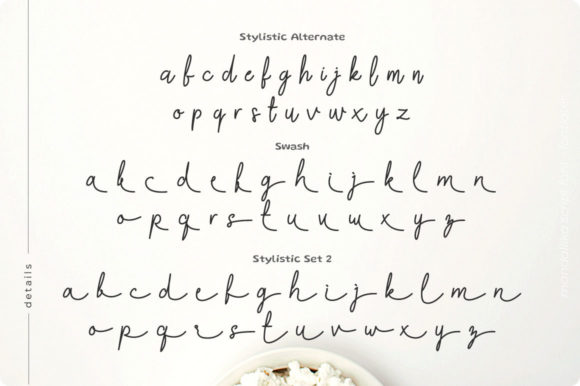 Stylistic Alternate
a b c d e f g h i j k l m n
o p q r s t u v w x y z
Swash
a b c d e f g h i j k l m n
o p q r s t u v w x y z
Stylistic Set 2
a b c d e f g h i j k l m n
o p q r s t u v w x y z
details